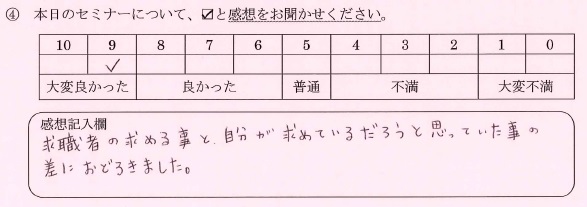 ④ 本日のセミナーについて、☑と感想をお聞かせください。
10 9 8 7 6 5 4 3 2 1 0
✓
大変良かった 良かった 普通 不満 大変不満
感想記入欄
求職者の求める事と、自分が求めているだろうと思っていた事の
差におどろきました。